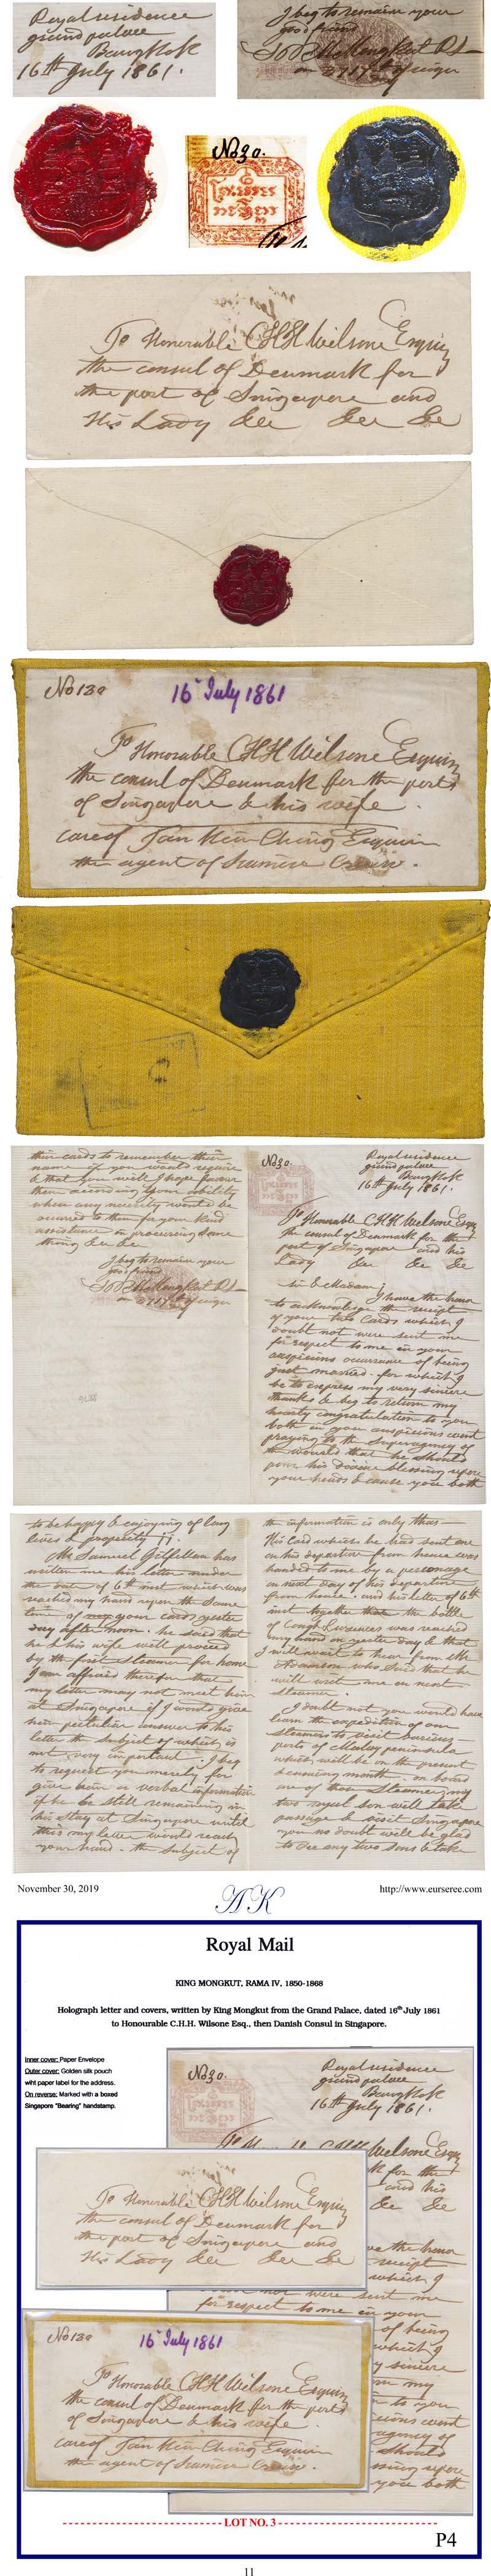 Royal residence
grand palace
Bangkok
16th July 1861.
I beg to remain your
good friend
No 30.
To Honorable CHH Wilsone Esquire
the consul of Denmark for
the port of Singapore and
His Lady &c &c &c
No 130
16 July 1861
To Honorable CHH Wilsone Esquire
the consul of Denmark for the port
of Singapore & his wife
care of Tan Kim Ching Esquire
the agent of Siamese
their cards to remember their
name if you would require
& that you will I hope favour
them according your ability
when any necessity would be
occurred to them for your kind
assistance in procuring some
thing &c &c
I beg to remain your
good friend
No 30.
Royal residence
grand palace
Bangkok
16th July 1861.
To Honorable CHH Wilsone Esq
the consul of Denmark for the
port of Singapore and his
Lady &c &c &c
Sir & Madam;
I have the honor
to acknowledge the receipt
of your two Cards which I
doubt not were sent me
for respect to me in your
auspicious occurance of being
just married. for which I
be to express my very sincere
thanks & beg to return my
hearty congratulation to you
both in your auspicious event
praying to the Superagency of
the worlds that he should
pour his divine blessing upon
your heads & cause you both
to be happy & enjoying of long
lives & prosperity
Mr Samuel Gilfillan has
written me his letter under
the date of 6th inst which was
reached my hand upon the same
time of your cards yester
day after noon. he said that
he & his wife will proceed
by the first steamer for home
I am affraid therefore that
my letter may not meet him
at Singapore if I would give
him peticular answer to his
letter the subject of which is
not very important. I beg
to request you merely for
give him a verbal information
if he be still remaining in
his stay at Singapore until
this my letter would reach
your hand. the subject of
the information is only thus—
His Card which he had sent me
on his departure from hence was
handed to me by a personage
on next day of his departure
from hence. and his letter of 6th
inst together the bottle
of was reached
my hand on yester day & that
I will await to hear from Mr
Adamson who said that he
will write me on next
steamer.
I doubt not you would have
learn the expedition of our
steamers to visit various
ports of Malay peninsula
which will be on the present
month. on board
one of those steamers my
two royal son will take
passage to visit Singapore
you no doubt will be glad
to see my two sons & take
November 30, 2019
AK
http://www.eurseree.com
Royal Mail
KING MONGKUT, RAMA IV, 1850-1868
Holograph letter and covers, written by King Mongkut from the Grand Palace, dated 16th July 1861
to Honourable C.H.H. Wilsone Esq., then Danish Consul in Singapore.
Inner cover: Paper Envelope
Outer cover: Golden silk pouch
wiht paper label for the address.
On reverse: Marked with a boxed
Singapore "Bearing" handstamp.
No 30.
Royal residence
grand palace
Bangkok
16th July 1861.
To Honorable CHH Wilsone Esquire
the consul of Denmark for
the port of Singapore and
His Lady &c &c &c
No 130
16 July 1861
To Honorable CHH Wilsone Esquire
the consul of Denmark for the port
of Singapore & his wife
care of Tan Kim Ching Esquire
the agent of Siamese
LOT NO. 3
P4
11